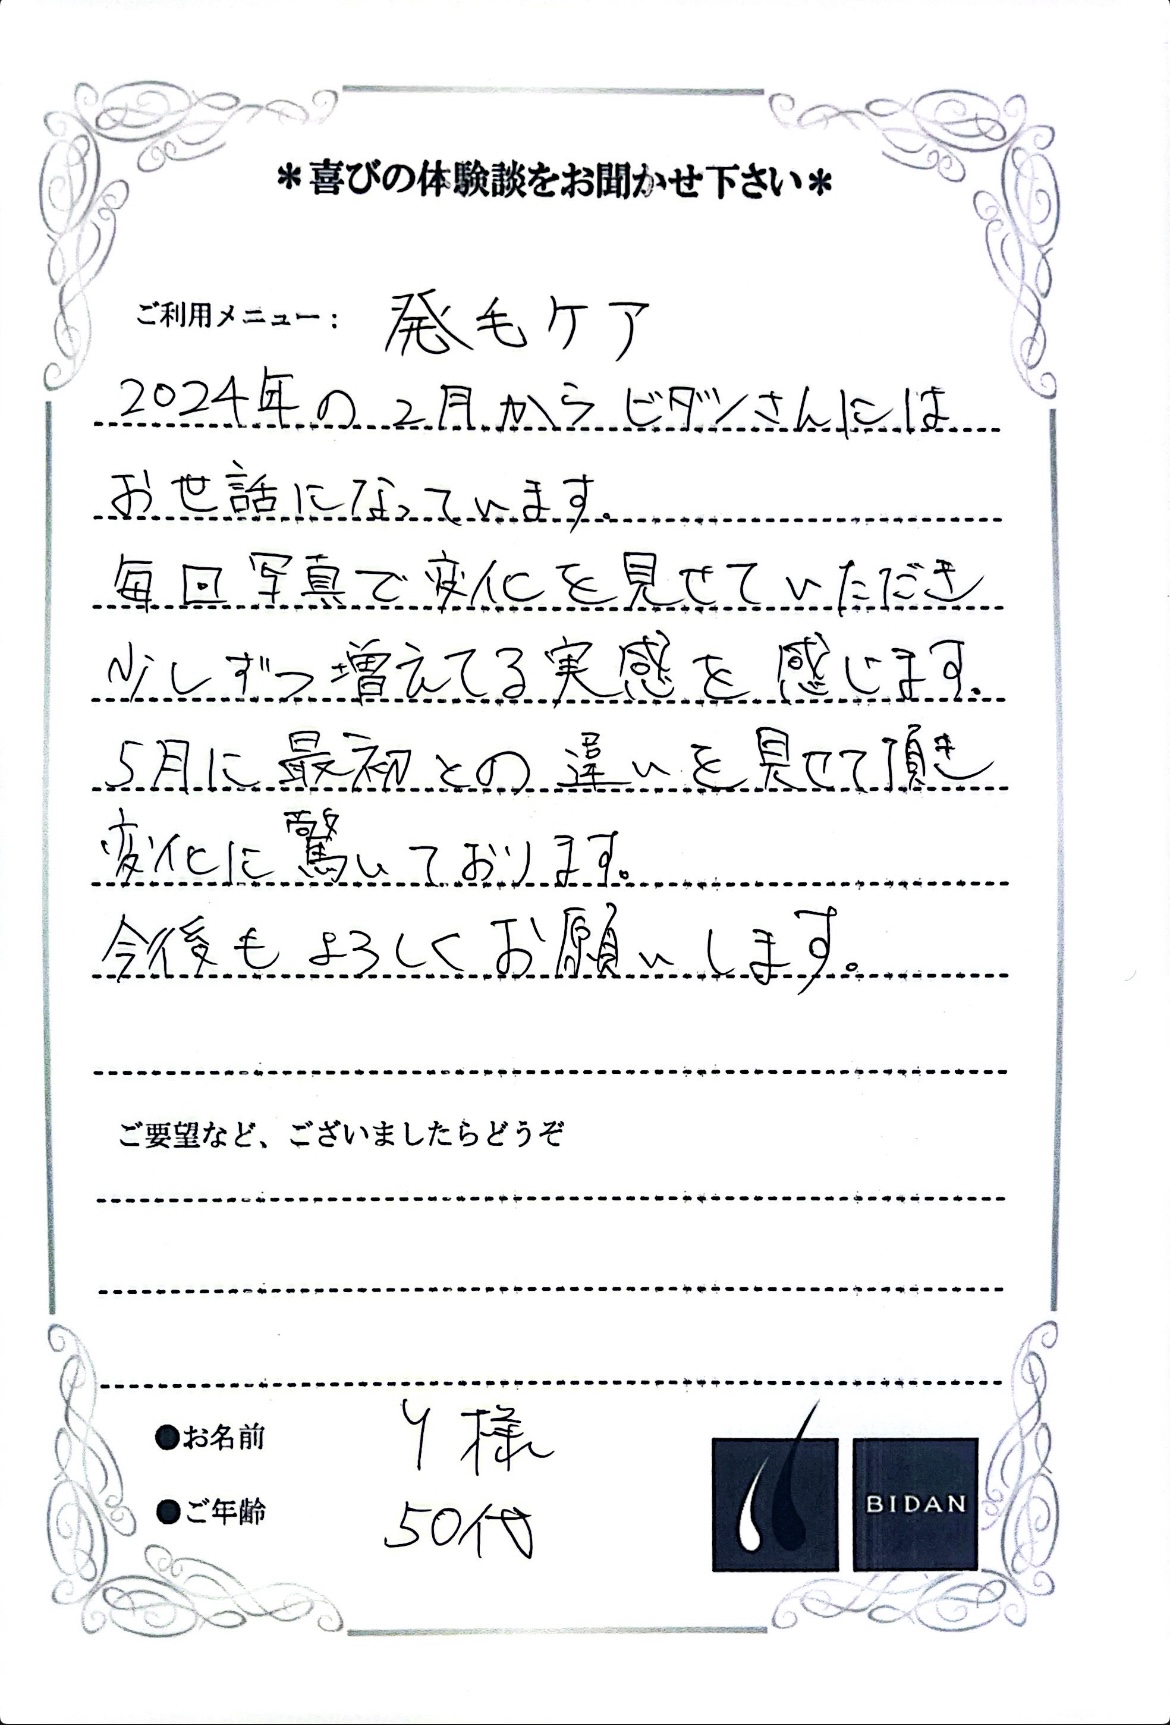 ＊喜びの体験談をお聞かせ下さい＊
ご利用メニュー： 発毛ケア
2024年の2月からビダンさんには
お世話になっています。
毎回写真で変化を見せていただき
少しずつ増えてる実感を感じます。
5月に最初との違いを見せて頂き
変化に驚いております。
今後もよろしくお願いします。
ご要望など、ございましたらどうぞ
●お名前 Y様
●ご年齢 50代
BIDAN